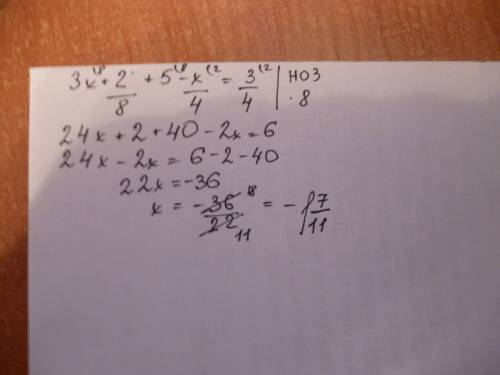 3x⁽⁸ + 2/8 + 5⁽⁸ - x/4⁽² = 3/4⁽² | НОЗ · 8
24x + 2 + 40 - 2x = 6
24x - 2x = 6 - 2 - 40
22x = -36
x = - 36/22 18 11 = - 1 7/11